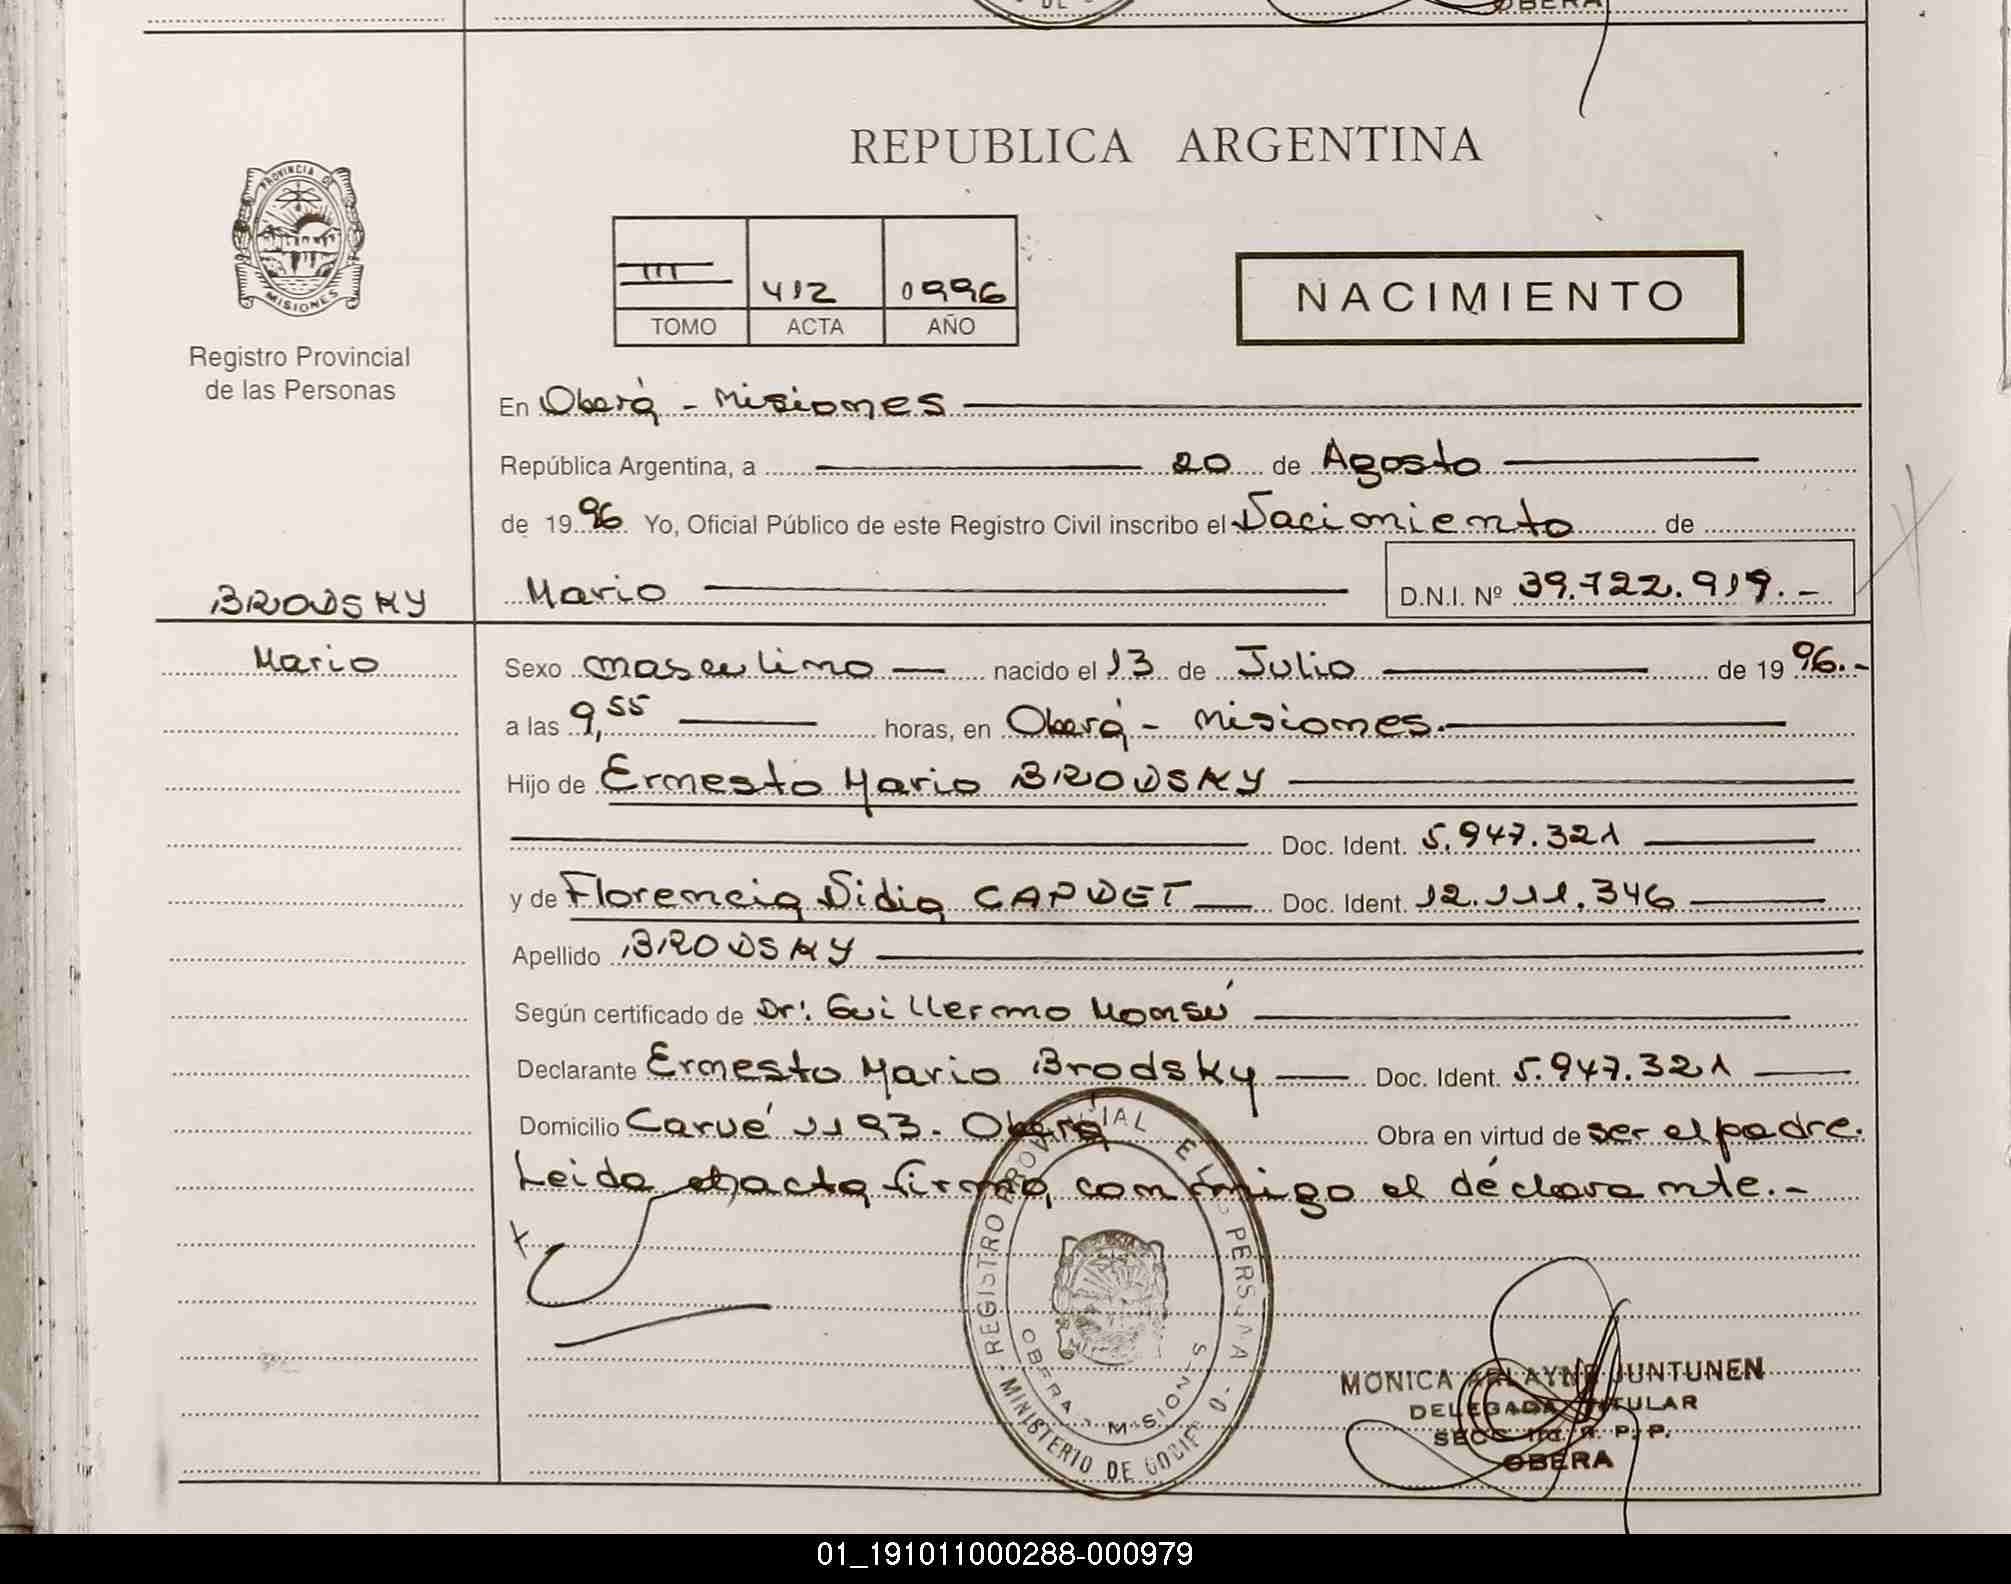 OBERA
REPUBLICA ARGENTINA
PROVINCIA DE
MISIONES
Registro Provincial
de las Personas
III 412 0996
TOMO ACTA AÑO
NACIMIENTO
En Oberá - Misiones
República Argentina, a 20 de Agosto
de 1996 Yo, Oficial Público de este Registro Civil inscribo el Nacimiento de
BRODSKY
Mario
Mario D.N.I. Nº 39.722.919.-
Sexo masculino nacido el 13 de Julio de 1996.-
a las 9,55 horas, en Oberá - Misiones.
Hijo de Ernesto Mario BRODSKY
Doc. Ident. 5.947.321
y de Florencia Nidia CAPDET Doc. Ident. 12.111.346
Apellido BRODSKY
Según certificado de Dr: Guillermo Monsú
Declarante Ernesto Mario Brodsky Doc. Ident. 5.947.321
Domicilio Carué 1193. Oberá Obra en virtud de ser el padre.
Leida el acta firma, con migo el declarante.-
x
REGISTRO PROVINCIAL DE LAS PERSONAS
OBERA - MISIONES
MINISTERIO DE GOBIERNO
MONICA ARLAYNE JUNTUNEN
DELEGADA TITULAR
SECC. R. P. P.
OBERA
01_191011000288-000979